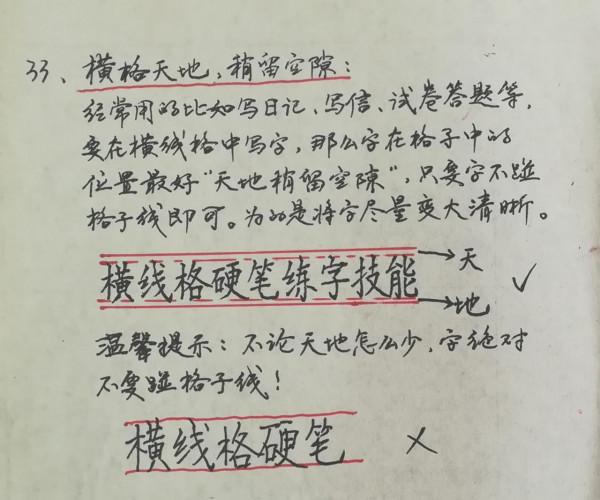 33、横格天地，稍留空隙：
经常用的比如写日记、写信、试卷答题等，
要在横线格中写字，那么字在格子中的
位置最好“天地稍留空隙”，只要字不碰
格子线即可。为的是将字尽量变大清晰。
横线格硬笔练字技能 →天 ✓
→地
温馨提示：不论天地怎么少，字绝对
不要碰格子线！
横线格硬笔 ×